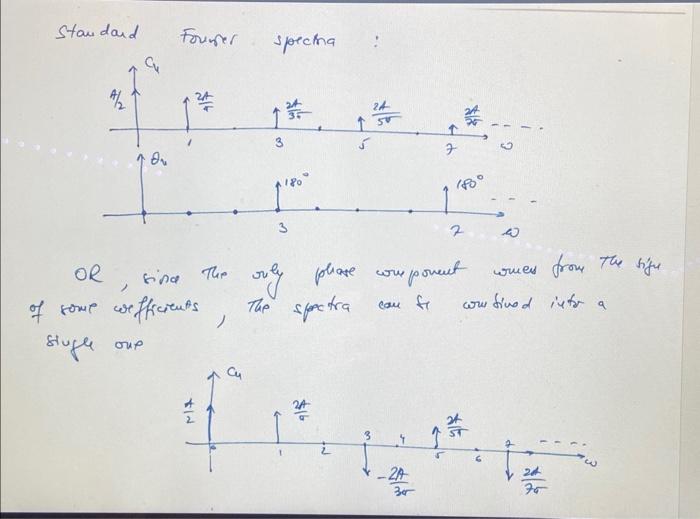 Standard Fourier spectra :
Cn
A/2
2A/π
2A/3π
2A/5π
2A/7π
1 3 5 7 ω
θn
180° 180°
3 7 ω
OR, since the only phase component comes from the sign
of some coefficients, the spectra can be combined into a
single one
Cn
A/2
2A/π
2A/5π
0 1 2 3 4 5 6 7 ω
-2A/3π
2A/7π